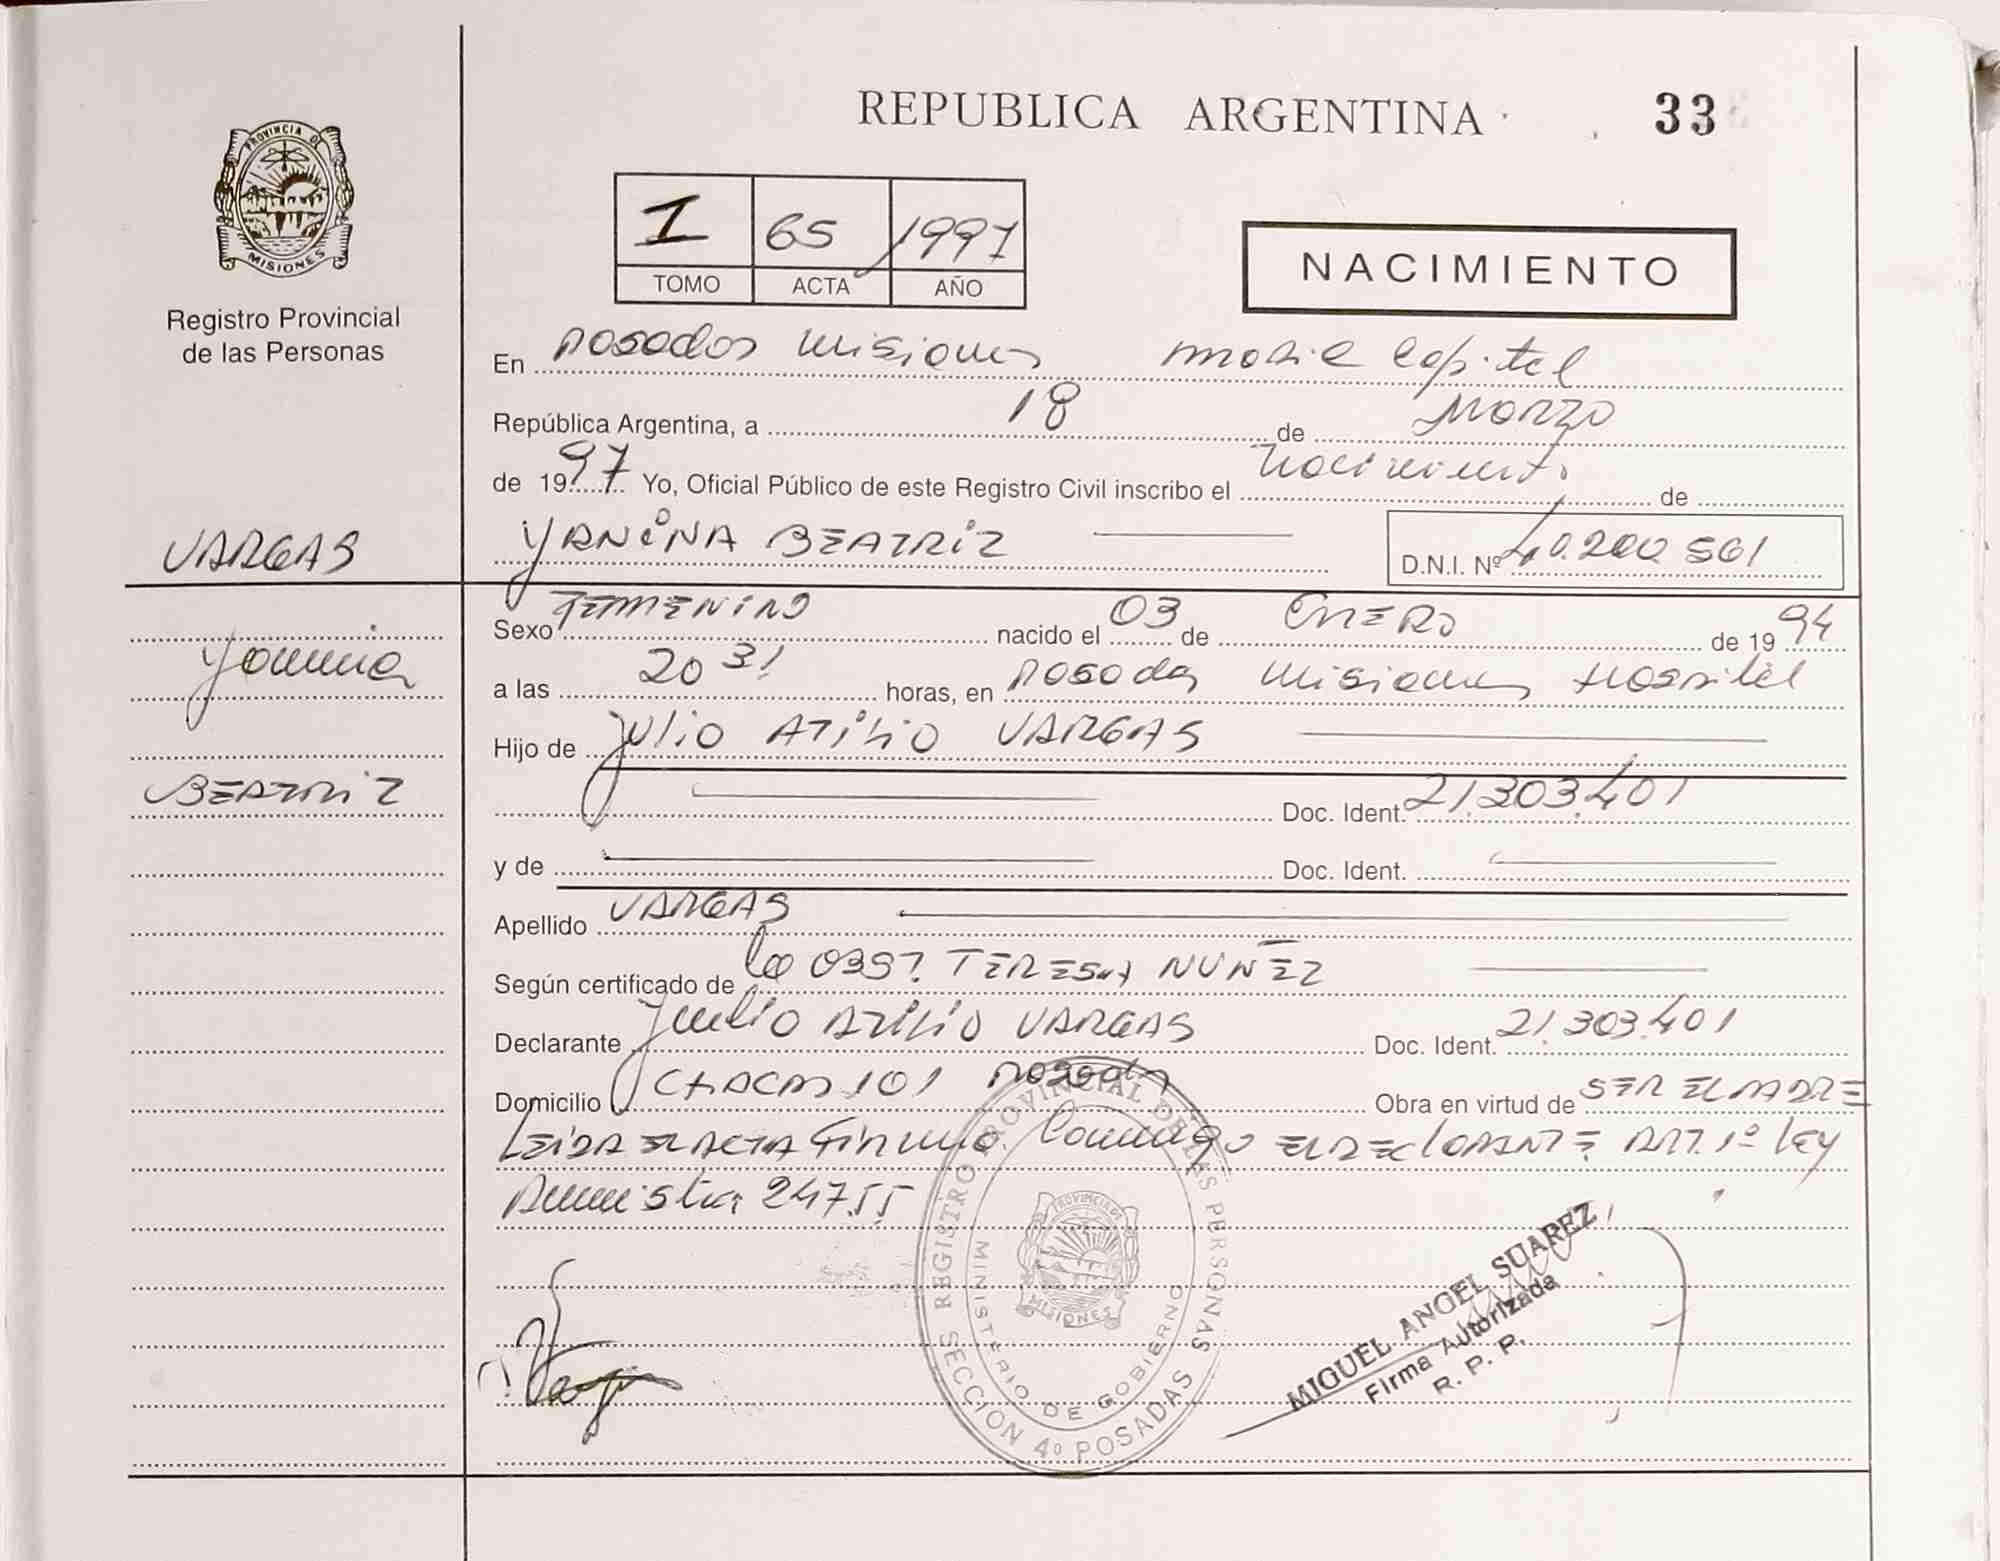 REPUBLICA ARGENTINA
33
PROVINCIA DE
MISIONES
Registro Provincial
de las Personas
I 65 1997
TOMO ACTA AÑO
NACIMIENTO
En posadas misiones movil capital
República Argentina, a 18 de Marzo
de 1997 Yo, Oficial Público de este Registro Civil inscribo el nacimiento de
VARGAS
YANINA BEATRIZ D.N.I. Nº 40.200 561
Sexo FEMENINO nacido el 03 de ENERO de 1994
Yanina
a las 20 31 horas, en posadas misiones Hospital
Hijo de Julio ATILIO VARGAS
BEATRIZ
Doc. Ident. 21.303.401
y de Doc. Ident.
Apellido VARGAS
Según certificado de TERESA NUÑEZ
Declarante Julio ATILIO VARGAS Doc. Ident. 21.303.401
Domicilio CHACAS 101 posadas Obra en virtud de SER EL PADRE
LEIDA EL ACTA Firma conmigo EL DECLARANTE ART. 1º LEY
Amnistia 24755
REGISTRO PROVINCIAL DE LAS PERSONAS
MINISTERIO DE GOBIERNO
PROVINCIA DE
MISIONES
SECCION 4º POSADAS
MIGUEL ANGEL SUAREZ
Firma Autorizada
R. P. P.